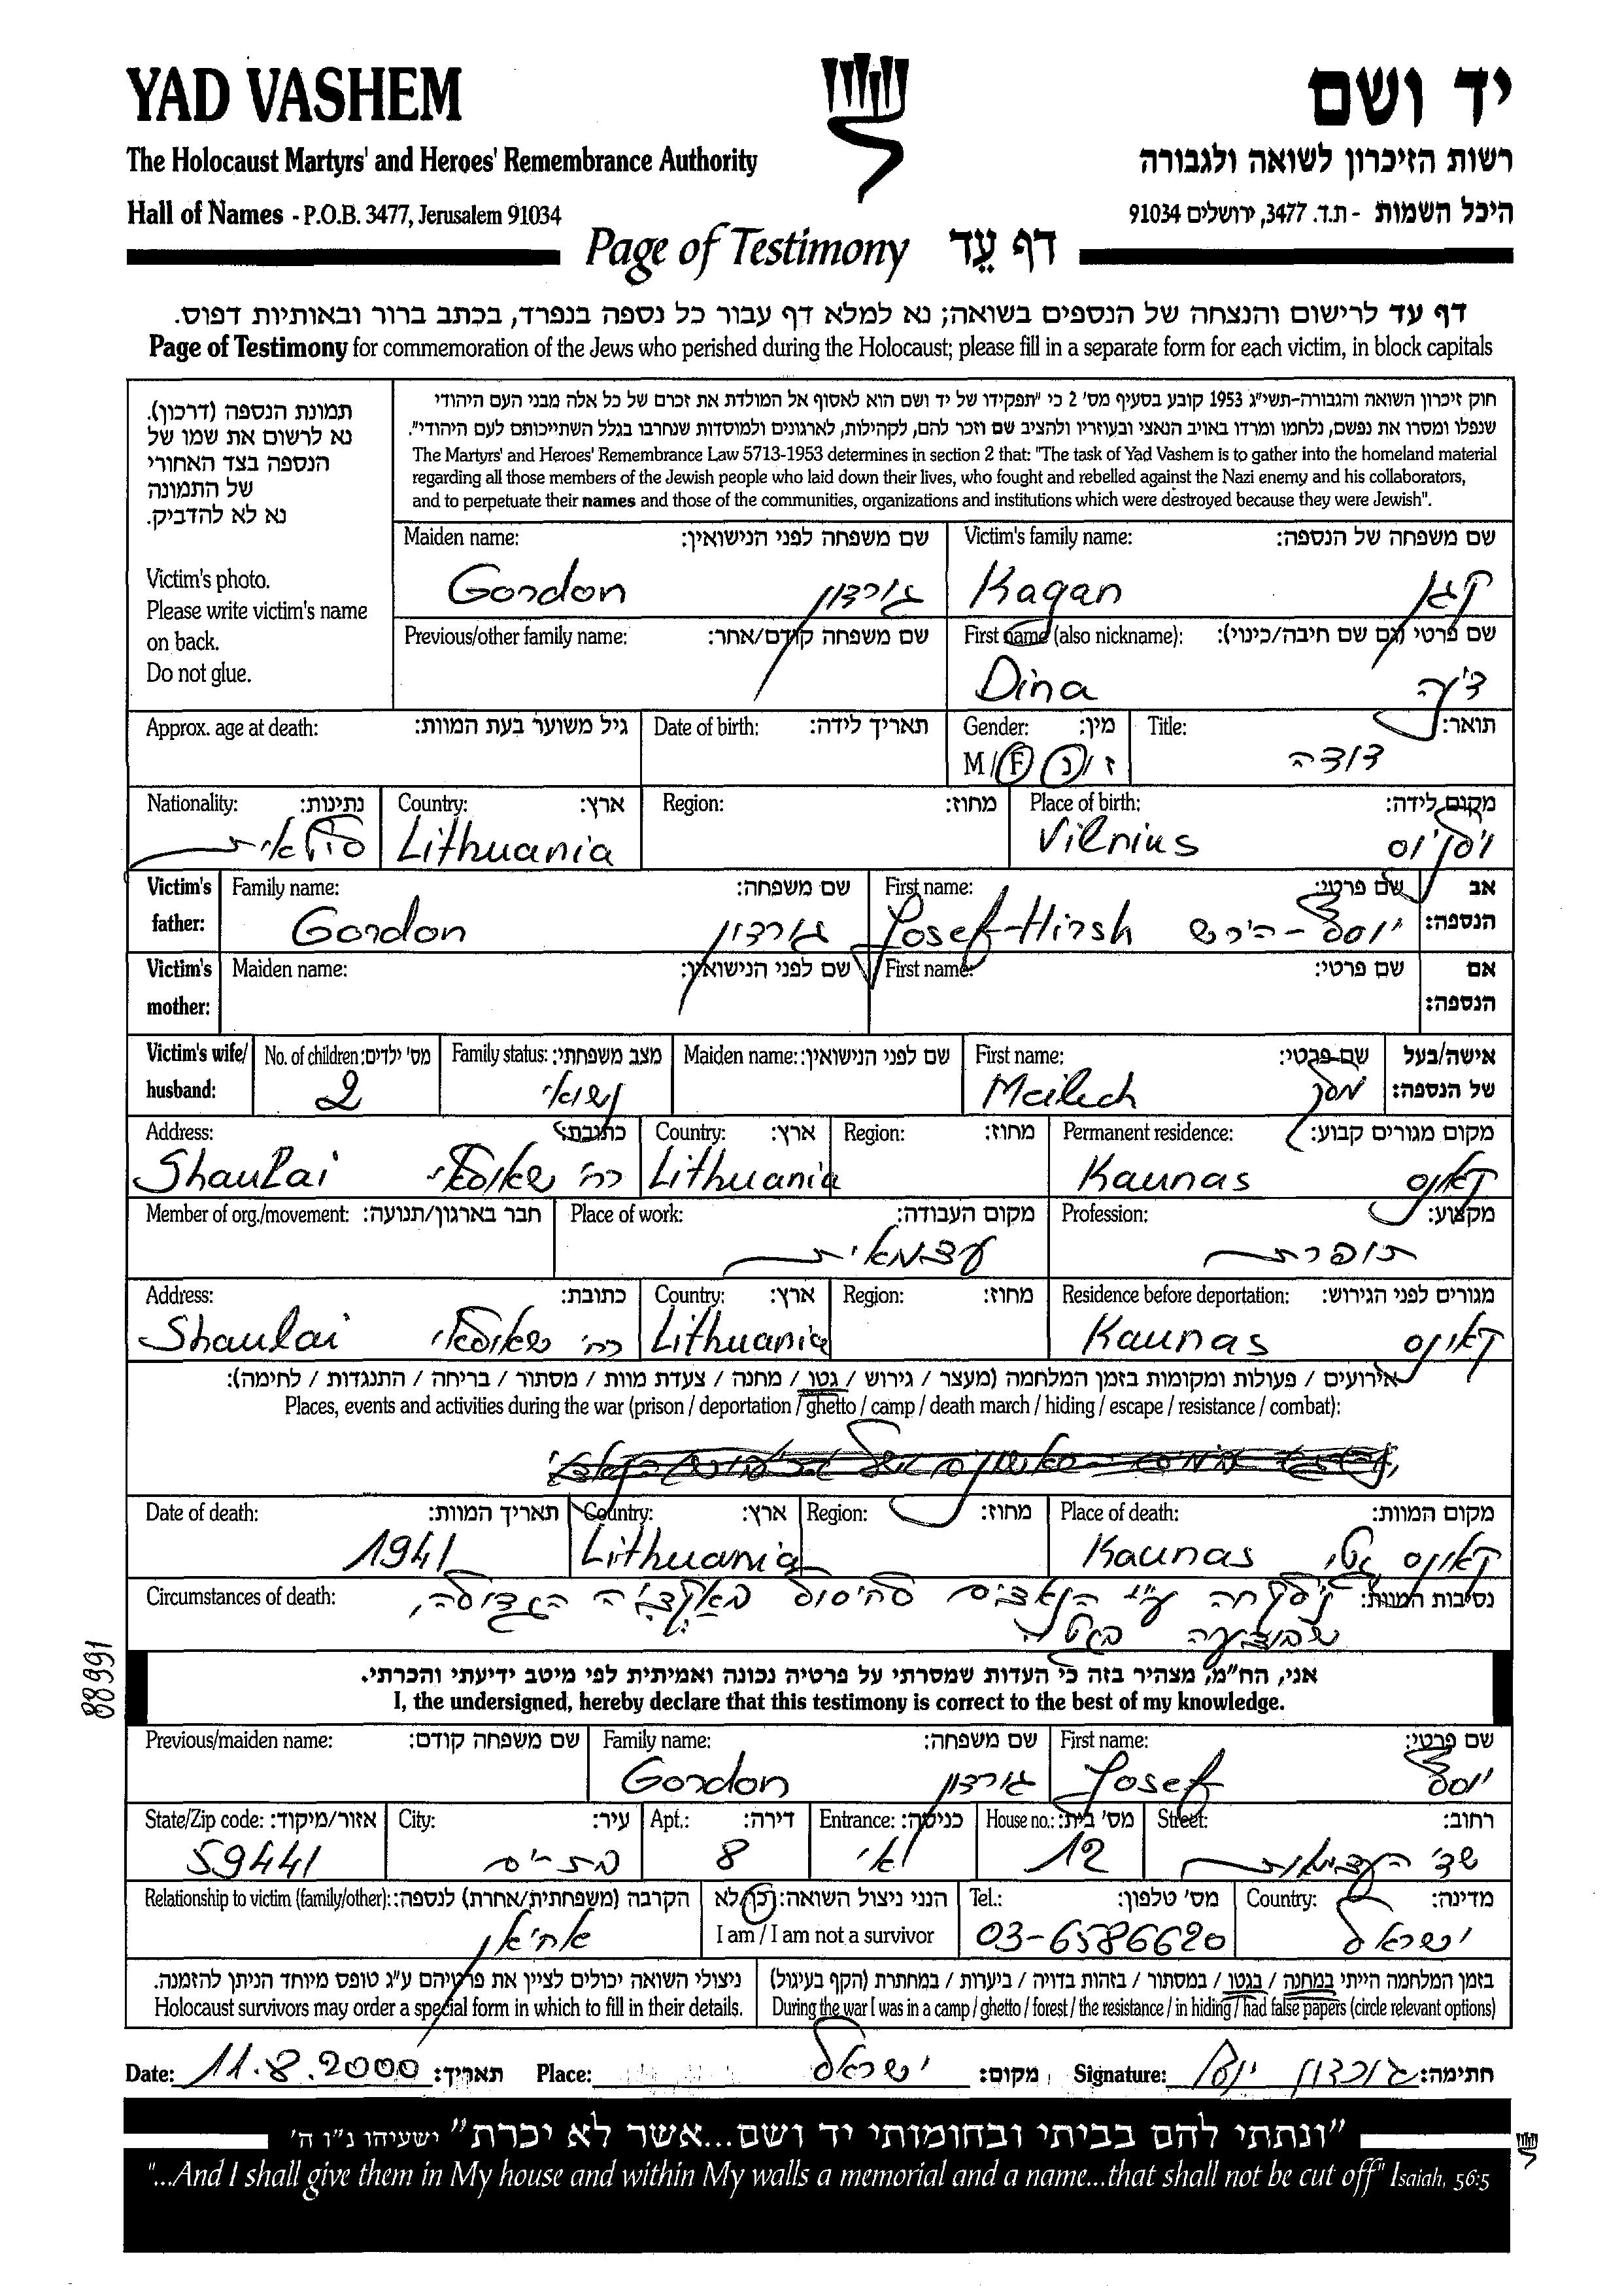 YAD VASHEM
יד ושם
The Holocaust Martyrs' and Heroes' Remembrance Authority
רשות הזיכרון לשואה ולגבורה
Hall of Names - P.O.B. 3477, Jerusalem 91034
היכל השמות - ת.ד. 3477, ירושלים 91034
Page of Testimony דף עֵד
דף עד לרישום והנצחה של הנספים בשואה; נא למלא דף עבור כל נספה בנפרד, בכתב ברור ובאותיות דפוס.
Page of Testimony for commemoration of the Jews who perished during the Holocaust; please fill in a separate form for each victim, in block capitals
תמונת הנספה (דרכון).
נא לרשום את שמו של
הנספה בצד האחורי
של התמונה
נא לא להדביק.
Victim's photo.
Please write victim's name
on back.
Do not glue.
חוק זיכרון השואה והגבורה-תשי"ג 1953 קובע בסעיף מס' 2 כי "תפקידו של יד ושם הוא לאסוף אל המולדת את זכרם של כל אלה מבני העם היהודי
שנפלו ומסרו את נפשם, נלחמו ומרדו באויב הנאצי ובעוזריו ולהציב שם וזכר להם, לקהילות, לארגונים ולמוסדות שנחרבו בגלל השתייכותם לעם היהודי".
The Martyrs' and Heroes' Remembrance Law 5713-1953 determines in section 2 that: "The task of Yad Vashem is to gather into the homeland material
regarding all those members of the Jewish people who laid down their lives, who fought and rebelled against the Nazi enemy and his collaborators,
and to perpetuate their names and those of the communities, organizations and institutions which were destroyed because they were Jewish".
Maiden name: שם משפחה לפני הנישואין: Victim's family name: שם משפחה של הנספה:
Gordon גורדון Kagan קגן
Previous/other family name: שם משפחה קודם/אחר: First name (also nickname): שם פרטי (גם שם חיבה/כינוי):
Dina דינה
Approx. age at death: גיל משוער בעת המוות: Date of birth: תאריך לידה: Gender: מין: Title: תואר:
M/F ז/נ דודה
Nationality: נתינות: Country: ארץ: Region: מחוז: Place of birth: מקום לידה:
Lithuania Vilnius וילניוס
Victim's father: Family name: שם משפחה: First name: שם פרטי: אב הנספה:
Gordon גורדון Yosef-Hirsh יוסף-הירש
Victim's mother: Maiden name: שם לפני הנישואין: First name: שם פרטי: אם הנספה:
Victim's wife/ husband: No. of children: מס' ילדים: Family status: מצב משפחתי: Maiden name: שם לפני הנישואין: First name: שם פרטי: אישה/בעל של הנספה:
2 נשואי Meilech מלך
Address: כתובת: Country: ארץ: Region: מחוז: Permanent residence: מקום מגורים קבוע:
Shaulai רח' שאולאי Lithuania Kaunas קאונס
Member of org./movement: חבר בארגון/תנועה: Place of work: מקום העבודה: Profession: מקצוע:
עצמאית תופרת
Address: כתובת: Country: ארץ: Region: מחוז: Residence before deportation: מגורים לפני הגירוש:
Shaulai רח' שאולאי Lithuania Kaunas קאונס
אירועים / פעולות ומקומות בזמן המלחמה (מעצר / גירוש / גטו / מחנה / צעדת מוות / מסתור / בריחה / התנגדות / לחימה):
Places, events and activities during the war (prison / deportation / ghetto / camp / death march / hiding / escape / resistance / combat):
Date of death: תאריך המוות: Country: ארץ: Region: מחוז: Place of death: מקום המוות:
1941 Lithuania Kaunas קאונס גטו
Circumstances of death: נסיבות המוות:
נלקחה ע"י הנאצים לחיסול באקציה הגדולה,
שבוצעה בגטו
88991
אני, הח"מ, מצהיר בזה כי העדות שמסרתי על פרטיה נכונה ואמיתית לפי מיטב ידיעתי והכרתי.
I, the undersigned, hereby declare that this testimony is correct to the best of my knowledge.
Previous/maiden name: שם משפחה קודם: Family name: שם משפחה: First name: שם פרטי:
Gordon גורדון Yosef יוסף
State/Zip code: אזור/מיקוד: City: עיר: Apt.: דירה: Entrance: כניסה: House no.: מס' בית: Street: רחוב:
59441 בת-ים 8 12 שד' העצמאות
Relationship to victim (family/other): הקרבה (משפחתית/אחרת) לנספה: הנני ניצול השואה: כן/לא Tel.: מס' טלפון: Country: מדינה:
אחיאן I am / I am not a survivor 03-6586620 ישראל
ניצולי השואה יכולים לציין את פרטיהם ע"ג טופס מיוחד הניתן להזמנה. בזמן המלחמה הייתי במחנה / בגטו / במסתור / בזהות בדויה / ביערות / במחתרת (הקף בעיגול)
Holocaust survivors may order a special form in which to fill in their details. During the war I was in a camp / ghetto / forest / the resistance / in hiding / had false papers (circle relevant options)
Date: 11.8.2000 תאריך: Place: ישראל מקום: Signature: גורדון יוסף חתימה:
"ונתתי להם בביתי ובחומותי יד ושם...אשר לא יכרת" ישעיהו נ"ו ה'
"...And I shall give them in My house and within My walls a memorial and a name...that shall not be cut off" Isaiah, 56:5